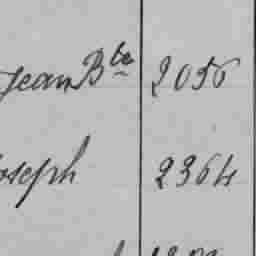 Jean Bte 2056
oseph 2364